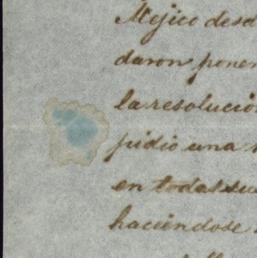 Mejico desd
daron poner
la resolució
pidio una
en todas su
haciendose